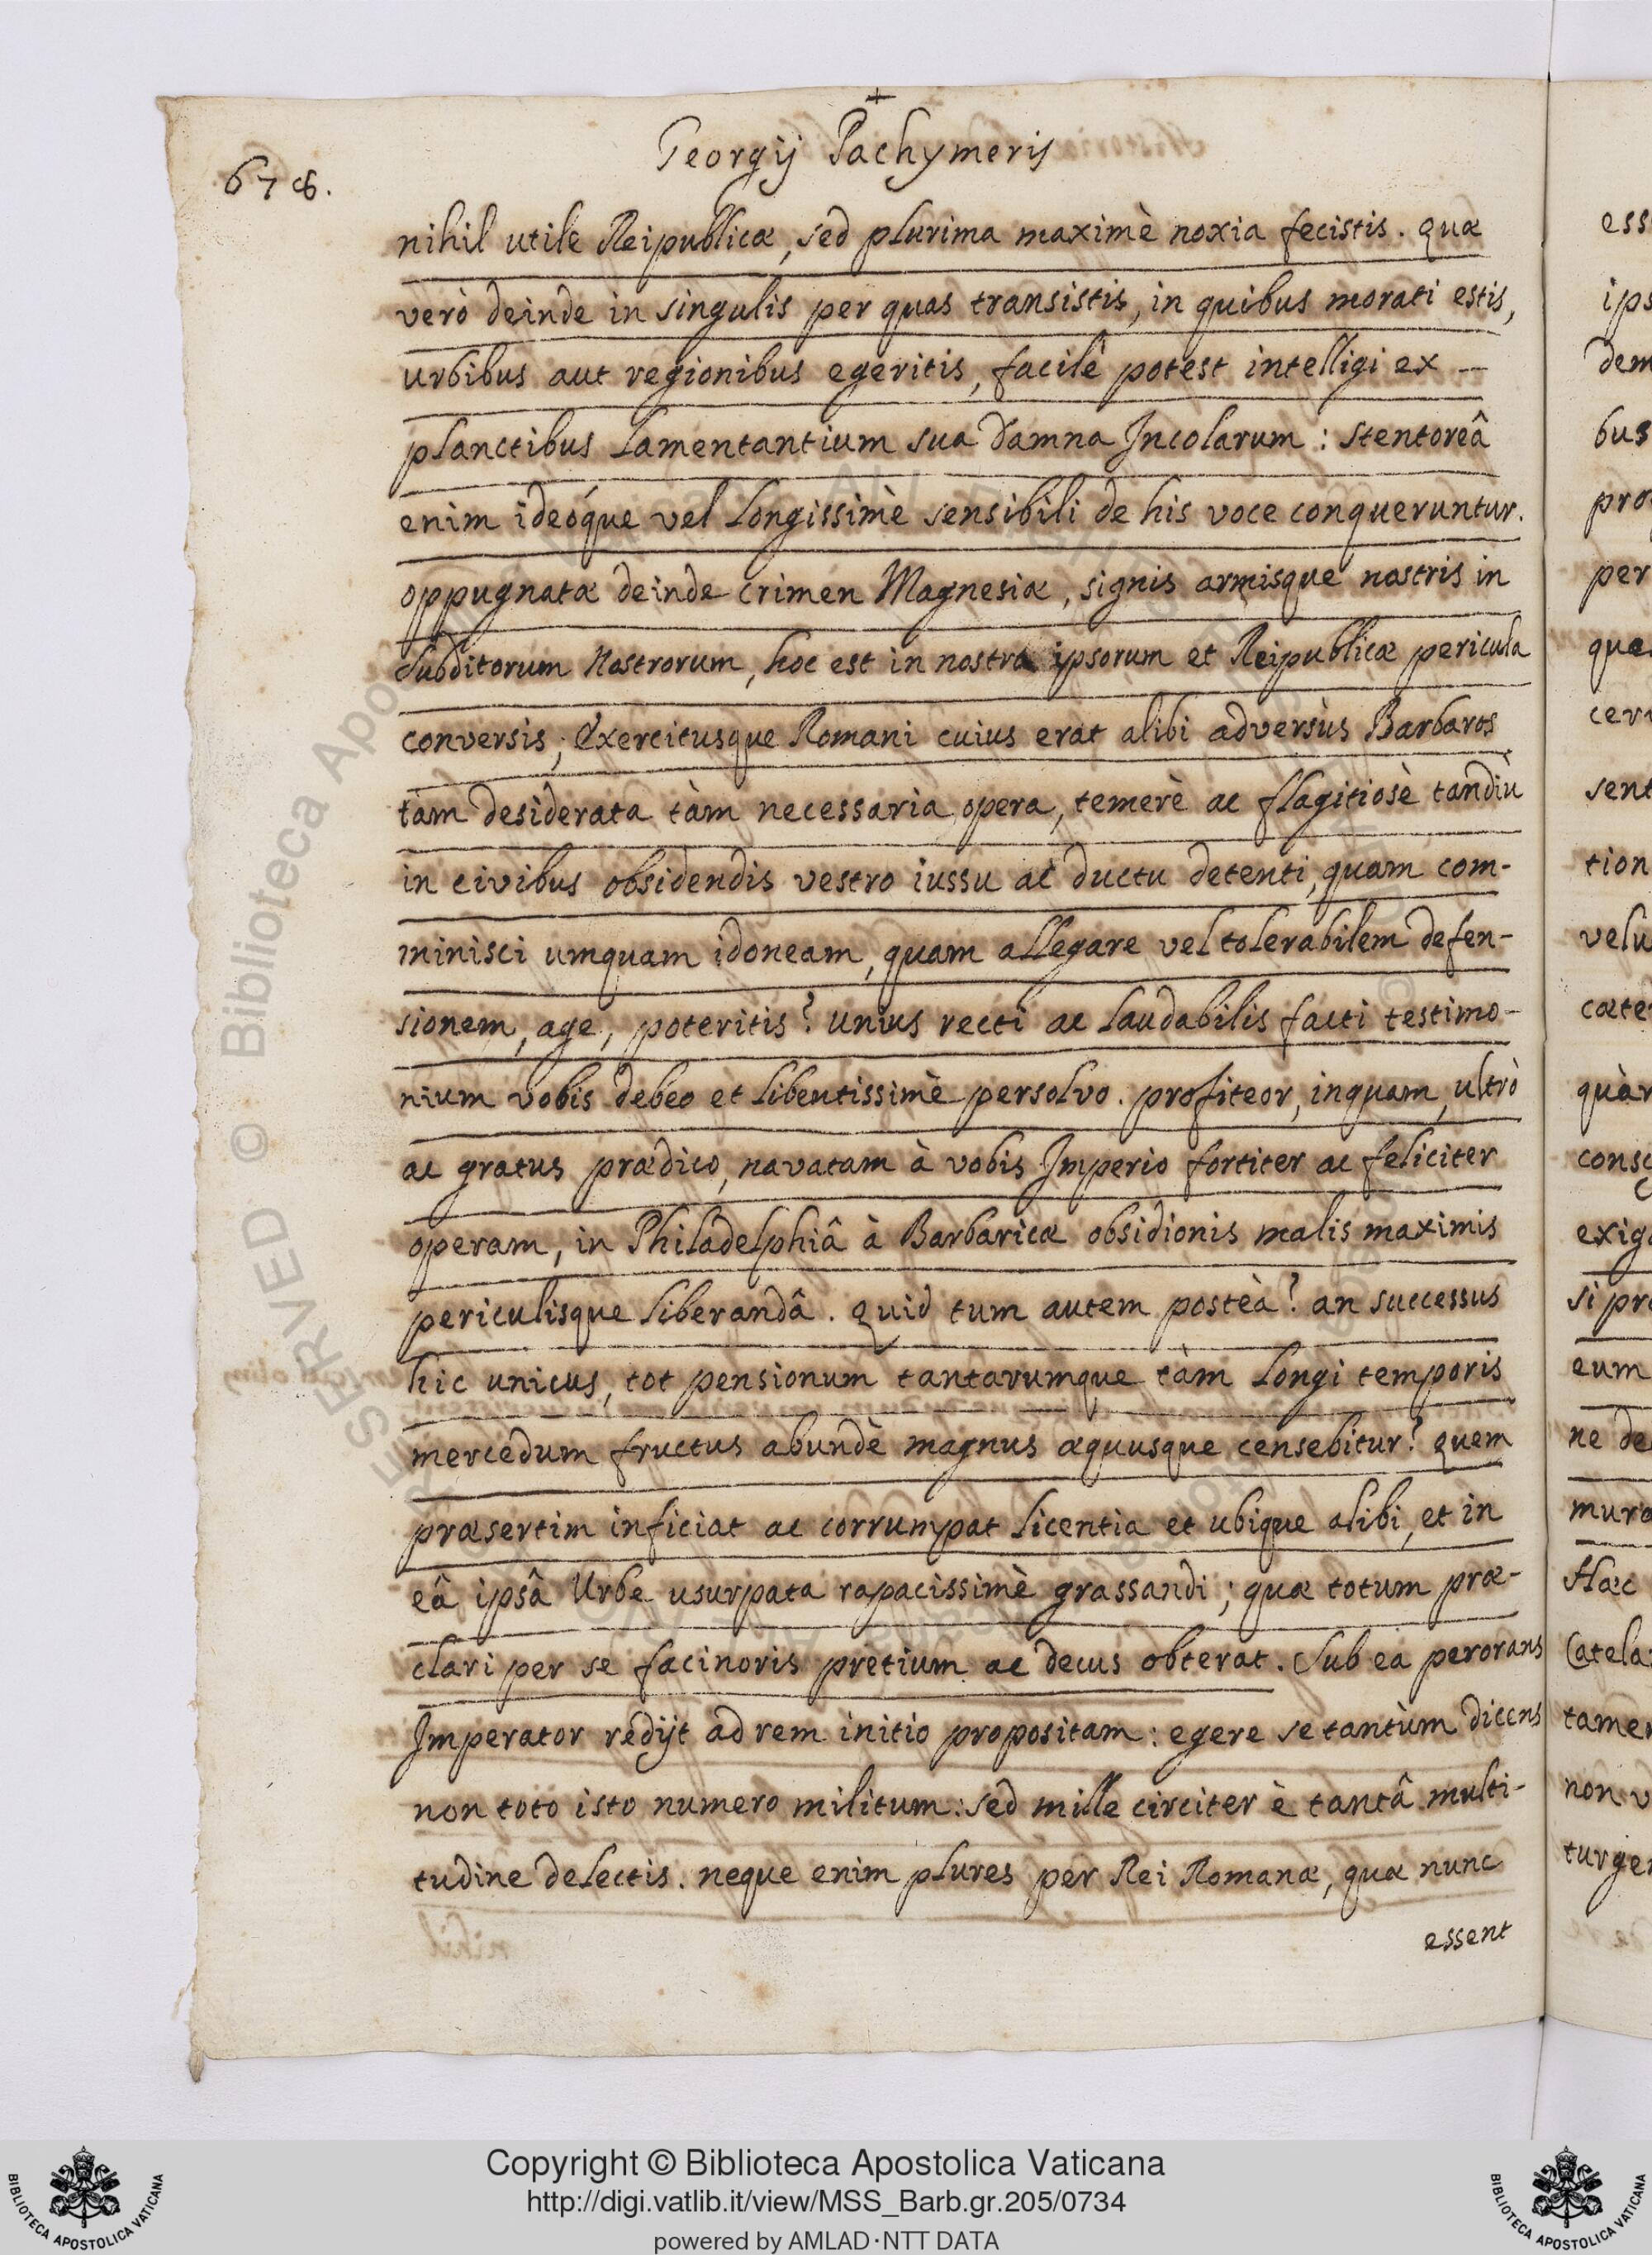 Georgij Pachymeris
678.
nihil utile Reipublicæ, sed plurima maximè noxia fecistis. quæ
verò deinde in singulis per quas transistis, in quibus morati estis,
urbibus aut regionibus egeritis, facilè potest intelligi ex –
planctibus lamentantium sua damna Incolarum: stentoreâ
enim ideóque vel longissimè sensibili de his voce conqueruntur.
oppugnatæ deinde crimen Magnesiæ, signis armisque nostris in
subditorum nostrorum, hoc est in nostra ipsorum et Reipublicæ pericula
conversis; Exercitusque Romani cuius erat alibi adversùs Barbaros
tàm desiderata tàm necessaria opera, temerè ac flagitiosè tandiù
in civibus obsidendis vestro iussu ac ductu detenti, quam com-
minisci umquam idoneam, quam allegare vel tolerabilem defen-
sionem, age, poteritis? unius recti ac laudabilis facti testimo-
nium vobis debeo et libentissimè persolvo. profiteor, inquam, ultrò
ac gratus prædico, navatam à vobis Imperio fortiter ac feliciter
operam, in Philadelphiâ à Barbaricæ obsidionis malis maximis
periculisque liberandâ. quid tum autem posteà? an successus
hic unicus, tot pensionum tantarumque tàm longi temporis
mercedum fructus abundè magnus æquusque censebitur? quem
præsertim inficiat ac corrumpat licentia et ubique alibi, et in
eâ ipsâ Urbe usurpata rapacissimè grassandi; quæ totum præ-
clari per se facinoris pretium ac decus obterat. Sub ea perorans
Imperator redijt ad rem initio propositam: egere se tantùm dicens
non toto isto numero militum: sed mille circiter è tantâ multi-
tudine delectis. neque enim plures per Rei Romanæ, quæ nunc
essent
ess
ips
dem
bus
pro
per
quæ
cer
sent
tion
velu
cæte
quàr
cons
exig
si pr
eum
ne de
mura
Hæc
Catela
tamen
non v
turge
Copyright © Biblioteca Apostolica Vaticana
http://digi.vatlib.it/view/MSS_Barb.gr.205/0734
powered by AMLAD·NTT DATA
BIBLIOTECA APOSTOLICA VATICANA
BIBLIOTECA APOSTOLICA VATICANA